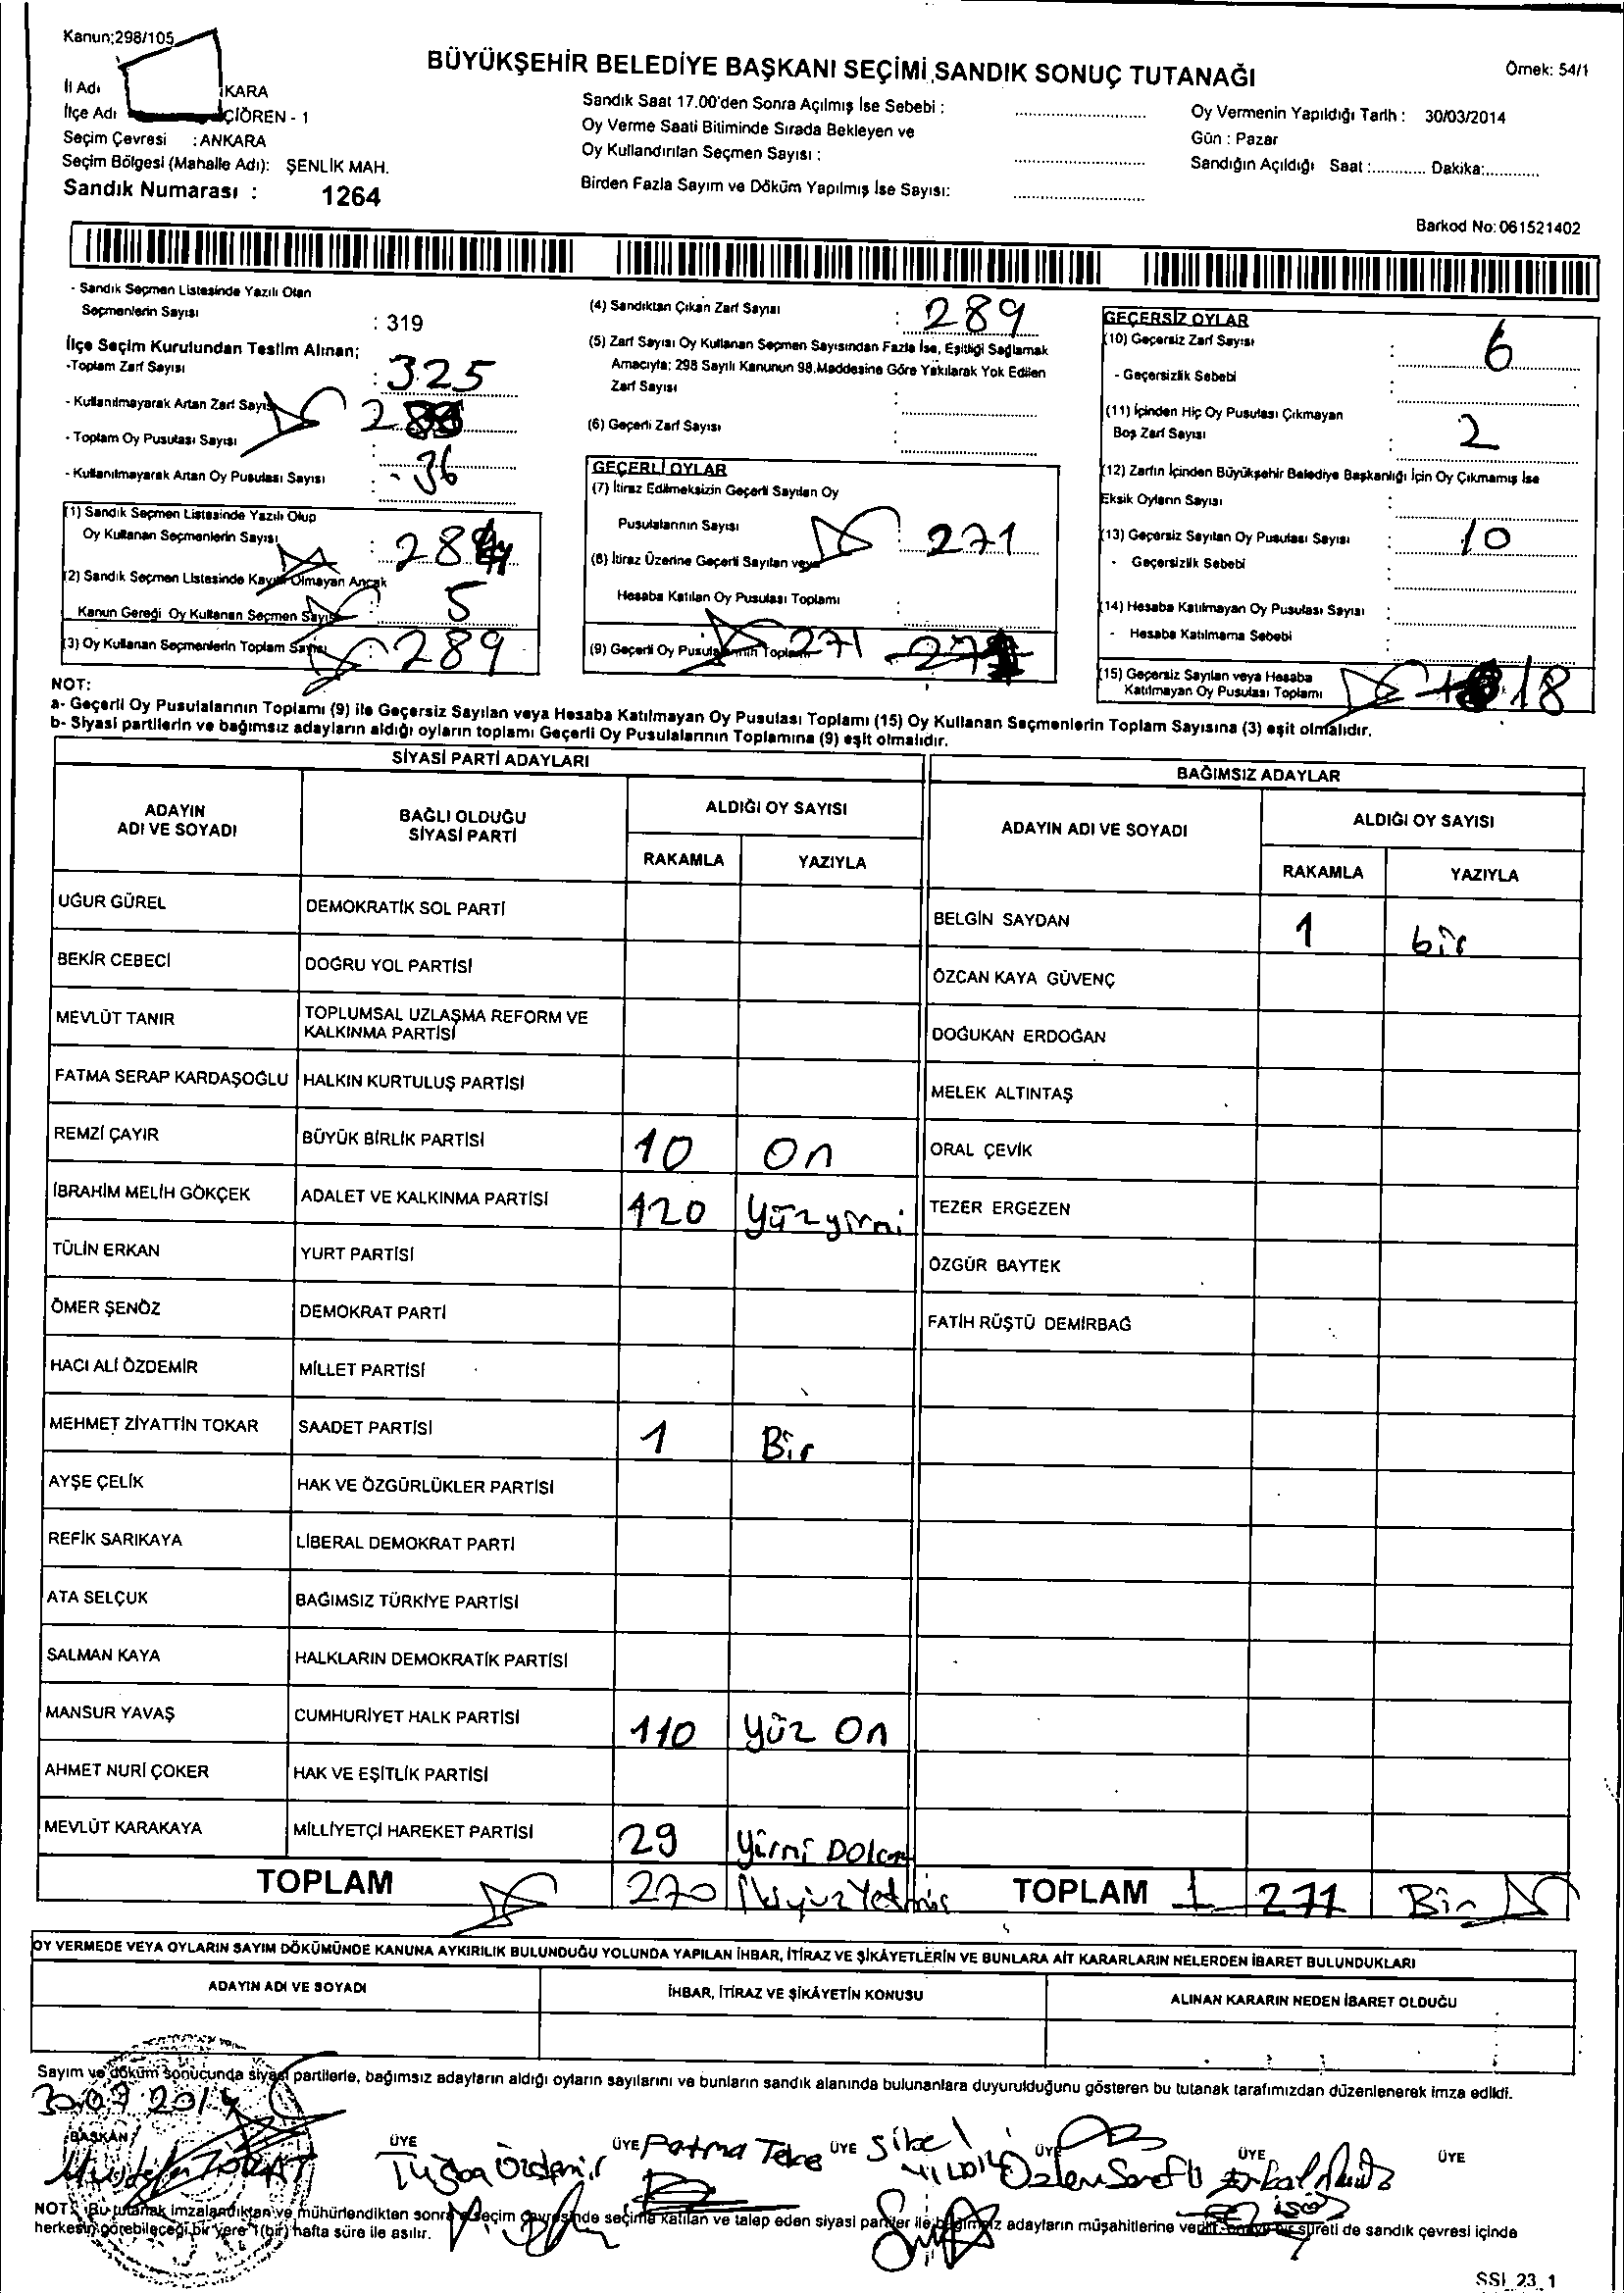 Kanun;298/105
BÜYÜKŞEHİR BELEDİYE BAŞKANI SEÇİMİ SANDIK SONUÇ TUTANAĞI
Örnek: 54/1
İl Adı KARA
İlçe Adı ÇİÖREN - 1
Seçim Çevresi : ANKARA
Seçim Bölgesi (Mahalle Adı): ŞENLİK MAH.
Sandık Numarası : 1264
Sandık Saat 17.00'den Sonra Açılmış İse Sebebi :
Oy Verme Saati Bitiminde Sırada Bekleyen ve
Oy Kullandırılan Seçmen Sayısı :
Birden Fazla Sayım ve Döküm Yapılmış İse Sayısı:
Oy Vermenin Yapıldığı Tarih : 30/03/2014
Gün : Pazar
Sandığın Açıldığı Saat :............. Dakika:.............
Barkod No: 061521402
- Sandık Seçmen Listesinde Yazılı Olan
Seçmenlerin Sayısı : 319
İlçe Seçim Kurulundan Teslim Alınan;
-Toplam Zarf Sayısı : 325
- Kullanılmayarak Artan Zarf Sayısı
- Toplam Oy Pusulası Sayısı :
- Kullanılmayarak Artan Oy Pusulası Sayısı : 36
(1) Sandık Seçmen Listesinde Yazılı Olup
Oy Kullanan Seçmenlerin Sayısı : 284
(2) Sandık Seçmen Listesinde Kayıtlı Olmayan Ancak
Kanun Gereği Oy Kullanan Seçmen Sayısı : 5
(3) Oy Kullanan Seçmenlerin Toplam Sayısı : 289
(4) Sandıktan Çıkan Zarf Sayısı : 289
(5) Zarf Sayısı Oy Kullanan Seçmen Sayısından Fazla İse, Eşitliği Sağlamak
Amacıyla; 298 Sayılı Kanunun 98.Maddesine Göre Yakılarak Yok Edilen
Zarf Sayısı :
(6) Geçerli Zarf Sayısı :
GEÇERLİ OYLAR
(7) İtiraz Edilmeksizin Geçerli Sayılan Oy
Pusulalarının Sayısı : 271
(8) İtiraz Üzerine Geçerli Sayılan veya
Hesaba Katılan Oy Pusulası Toplamı :
(9) Geçerli Oy Pusulalarının Toplamı 271 271
GEÇERSİZ OYLAR
(10) Geçersiz Zarf Sayısı : 6
- Geçersizlik Sebebi :
(11) İçinden Hiç Oy Pusulası Çıkmayan
Boş Zarf Sayısı : 2
(12) Zarfın İçinden Büyükşehir Belediye Başkanlığı İçin Oy Çıkmamış İse
Eksik Oyların Sayısı :
(13) Geçersiz Sayılan Oy Pusulası Sayısı : 10
- Geçersizlik Sebebi
(14) Hesaba Katılmayan Oy Pusulası Sayısı :
- Hesaba Katılmama Sebebi :
(15) Geçersiz Sayılan veya Hesaba
Katılmayan Oy Pusulası Toplamı 18
NOT:
a- Geçerli Oy Pusulalarının Toplamı (9) ile Geçersiz Sayılan veya Hesaba Katılmayan Oy Pusulası Toplamı (15) Oy Kullanan Seçmenlerin Toplam Sayısına (3) eşit olmalıdır.
b- Siyasi partilerin ve bağımsız adayların aldığı oyların toplamı Geçerli Oy Pusulalarının Toplamına (9) eşit olmalıdır.
SİYASİ PARTİ ADAYLARI
ADAYIN ADI VE SOYADI BAĞLI OLDUĞU SİYASİ PARTİ ALDIĞI OY SAYISI
RAKAMLA YAZIYLA
UĞUR GÜREL DEMOKRATİK SOL PARTİ
BEKİR CEBECİ DOĞRU YOL PARTİSİ
MEVLÜT TANIR TOPLUMSAL UZLAŞMA REFORM VE KALKINMA PARTİSİ
FATMA SERAP KARDAŞOĞLU HALKIN KURTULUŞ PARTİSİ
REMZİ ÇAYIR BÜYÜK BİRLİK PARTİSİ 10 On
İBRAHİM MELİH GÖKÇEK ADALET VE KALKINMA PARTİSİ 120 Yüzyirmi
TÜLİN ERKAN YURT PARTİSİ
ÖMER ŞENÖZ DEMOKRAT PARTİ
HACI ALİ ÖZDEMİR MİLLET PARTİSİ
MEHMET ZİYATTİN TOKAR SAADET PARTİSİ 1 Bir
AYŞE ÇELİK HAK VE ÖZGÜRLÜKLER PARTİSİ
REFİK SARIKAYA LİBERAL DEMOKRAT PARTİ
ATA SELÇUK BAĞIMSIZ TÜRKİYE PARTİSİ
SALMAN KAYA HALKLARIN DEMOKRATİK PARTİSİ
MANSUR YAVAŞ CUMHURİYET HALK PARTİSİ 110 Yüz On
AHMET NURİ ÇOKER HAK VE EŞİTLİK PARTİSİ
MEVLÜT KARAKAYA MİLLİYETÇİ HAREKET PARTİSİ 29 Yirmi Dokuz
TOPLAM 270 İkiyüzYetmiş
BAĞIMSIZ ADAYLAR
ADAYIN ADI VE SOYADI ALDIĞI OY SAYISI
RAKAMLA YAZIYLA
BELGİN SAYDAN 1 bir
ÖZCAN KAYA GÜVENÇ
DOĞUKAN ERDOĞAN
MELEK ALTINTAŞ
ORAL ÇEVİK
TEZER ERGEZEN
ÖZGÜR BAYTEK
FATİH RÜŞTÜ DEMİRBAĞ
TOPLAM 1 271 Bir
OY VERMEDE VEYA OYLARIN SAYIM DÖKÜMÜNDE KANUNA AYKIRILIK BULUNDUĞU YOLUNDA YAPILAN İHBAR, İTİRAZ VE ŞİKÂYETLERİN VE BUNLARA AİT KARARLARIN NELERDEN İBARET BULUNDUKLARI
ADAYIN ADI VE SOYADI İHBAR, İTİRAZ VE ŞİKÂYETİN KONUSU ALINAN KARARIN NEDEN İBARET OLDUĞU
Sayım ve döküm sonucunda siyasi partilerle, bağımsız adayların aldığı oyların sayılarını ve bunların sandık alanında bulunanlara duyurulduğunu gösteren bu tutanak tarafımızdan düzenlenerek imza edildi.
BAŞKAN ÜYE ÜYE ÜYE ÜYE ÜYE ÜYE
Tuğba Özdemir Fatma Teke Sibel
NOT: Bu tutanak imzalandıktan ve mühürlendikten sonra seçim çevresinde seçime katılan ve talep eden siyasi partiler ile bağımsız adayların müşahitlerine verilir. bir sureti de sandık çevresi içinde
herkesin görebileceği bir yere 1 (bir) hafta süre ile asılır.
SSI_23_1